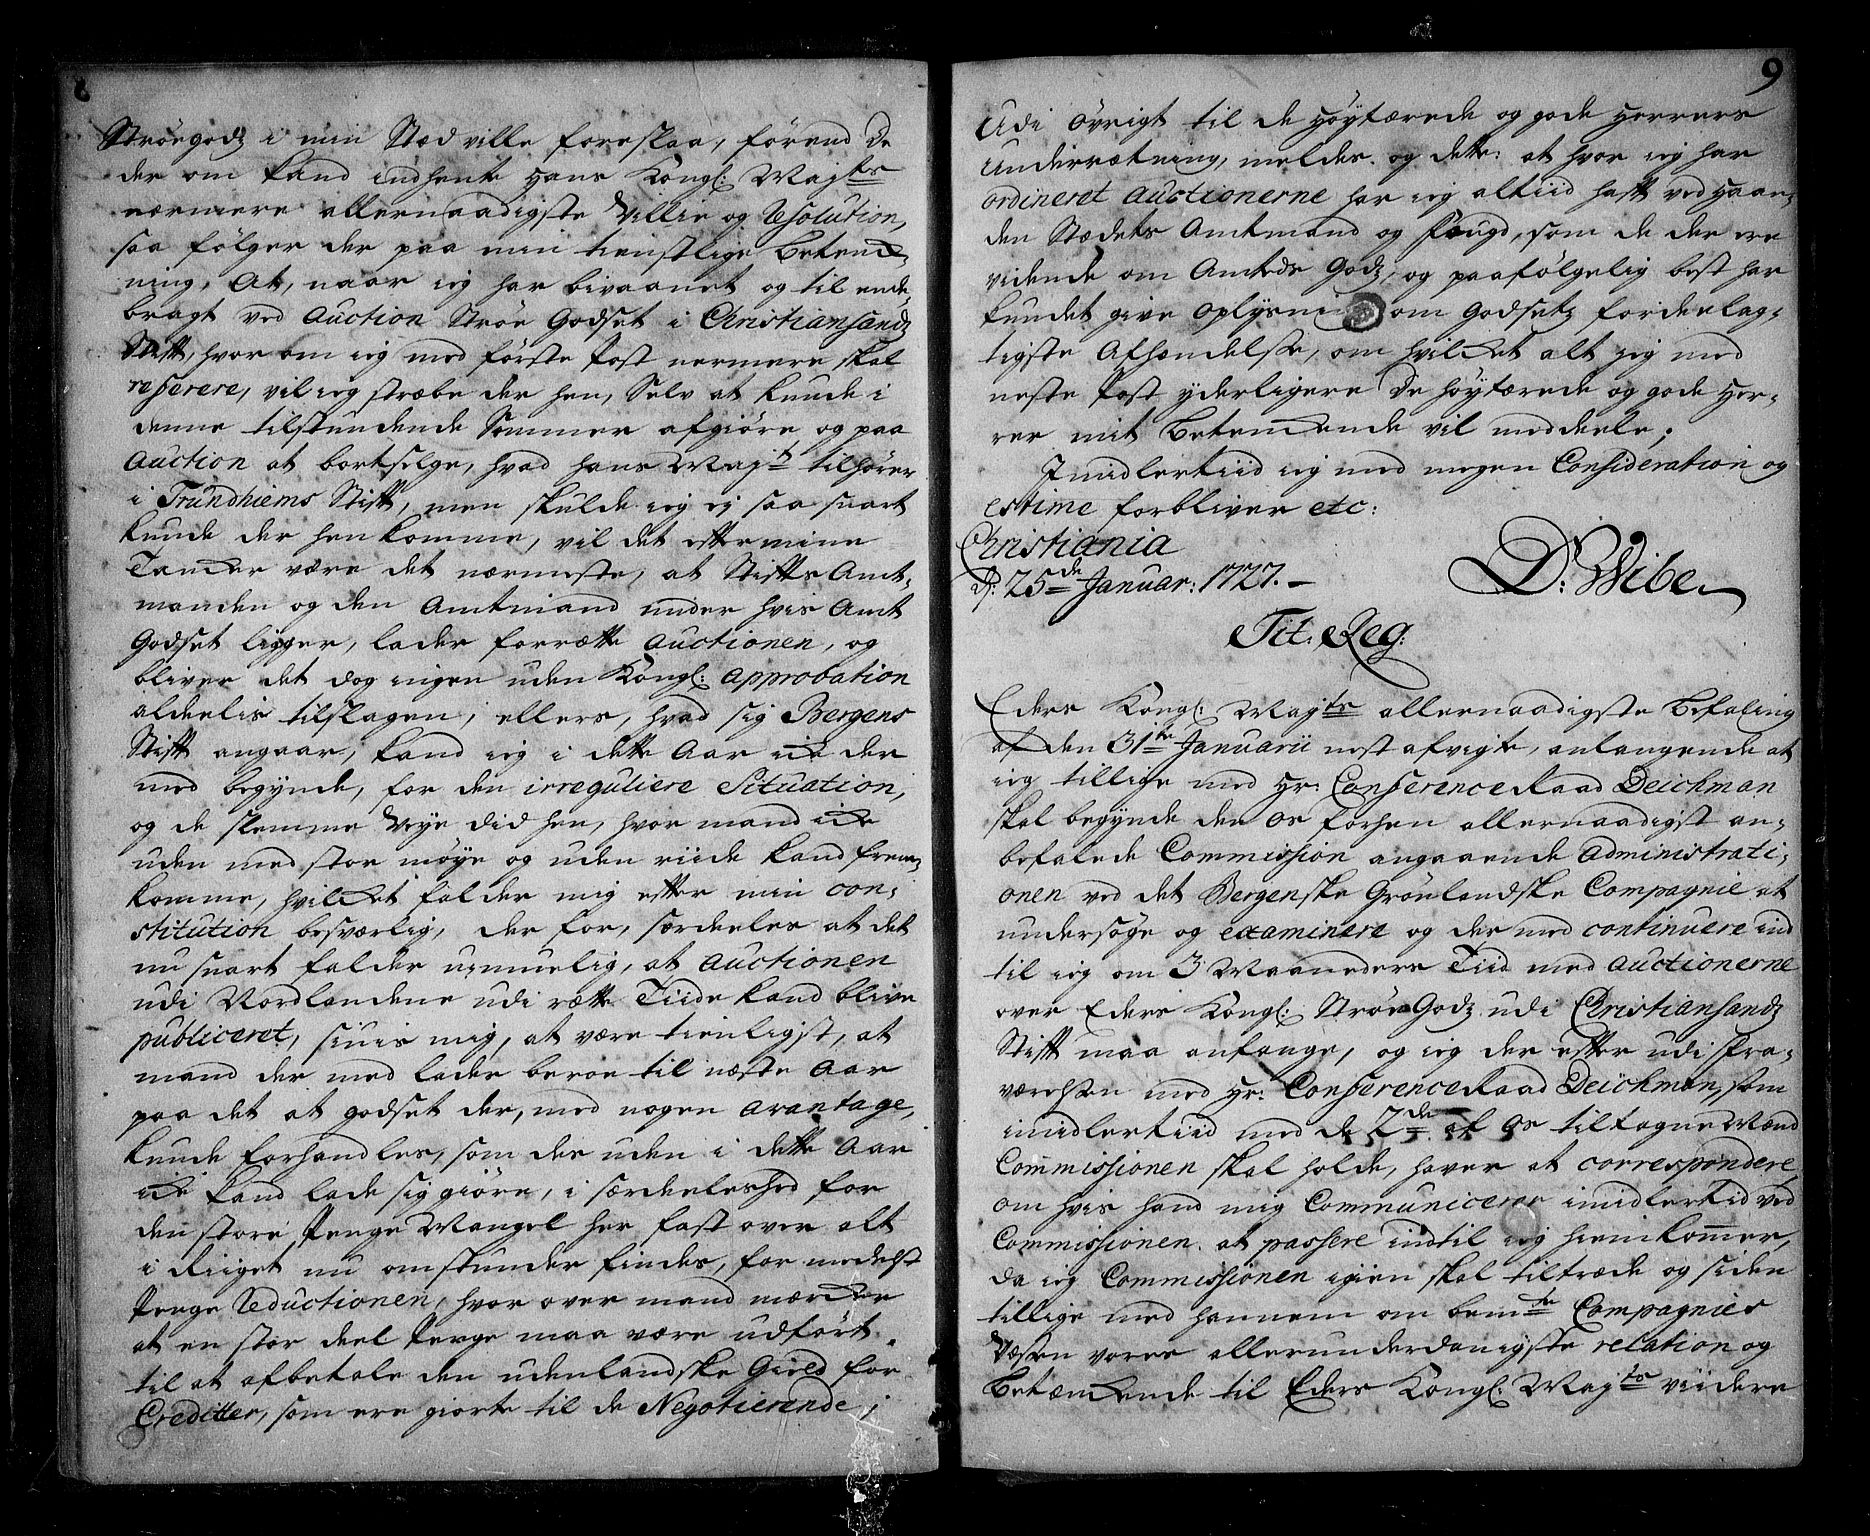 8
Strøegodz i min Stæd ville foreslaa, førend De
der om kand indhente Hans Kongl: Maj:ts
nærmere allernaadigste Villie og Resolution,
saa følger der paa min tienstlige betenk-
ning, At, naar ieg har bivaanet og til ende
bragt ved Auction Strøe Godset i Christiansandz
Stift, hvor om ieg med første Post nermere skal
referere, vil ieg stræbe der hen, Selv at kunde i
denne tilstundende Sommer afgiøre og paa
Auction at bortselge, hvad hans Maj:t tilhører
i Trundhiems Stift, men skulde ieg ej saa snart
kunde der hen komme, vil det efter mine
Tanker være det nærmeste, at Stifts Amt-
manden og den Amtmand under hvis Amt
Godset ligger, lader forrætte Auctionen, og
bliver det dog ingen uden Kongl: approbation
aldeelis tilslagen; ellers, hvad sig Bergens
Stift angaar, kand ieg i dette Aar icke der
med begynde, for den irreguliere Situation,
og de slemme Veye did hen, hvor mand icke
uden med stor møye og uden riide kand frem-
komme, hvilcket falder mig efter min con-
stitution besværlig, der for, særdeeles at det
nu snart falder umuelig, at Auctionen
udi Nordlandene udi rætte Tiide kand blive
publiceret, siunis mig, at være tienligst, at
mand der med lader beroe til næste Aar
paa det at godset der, med nogen avantage,
kunde forhandles, som des uden i dette Aar
icke kand lade sig giøre, i særdeeleshed for
den store Penge Mangel her fast over alt
i Riiget nu omstunder findes, for medelst
Penge Reductionen, hvor over mand mærcker
at en stor deel Penge maa være udført
til at afbetale den udenlandske Gield for
Creditter, som ere giorte til de Negotierende;
9
Udi Øvrigt til de Høytærede og gode Herrers
Underrætning, meldes og dette: at hvor ieg har
ordineret Auctionerne har ieg altiid haft ved Haan-
den Stædets Amtmand og Fougd, som de der ere
vidende om Amtets Godz, og paafølgelig best har
kundet give Oplysning om Godsets fordeelag-
tigste Afhændelse, om hvilcket alt jeg med
neste Post yderligere De høytærede og gode Her-
rer mit Betenckende vil meddeele.
Imidlertiid ieg med megen Consideration og
estime forbliver etc:
Christiania
d: 25de Januar: 1727.
D: Wibe
Tit. Reg:
Eders Kongl: Maj:ts allernaadigste Befaling
af den 31te Januarii nest afvigte, anlangende at
ieg tillige med Hr: Conference Raad Deichman
skal begynde den os forhen allernaadigst an-
befalede Commission angaaende Administrati-
onen ved det Bergenske Grønlandske Compagnie at
undersøge og examinere og der med continuere ind
til ieg om 3 Maaneders Tiid med Auctionerne
over Eders Kongl: Strøe Godz udi Christiansandz
Stift maa anfange, og ieg der efter udi fra-
værelsen med Hr: Conference Raad Deichman, som
imidlertiid med de 2de af os tiltagne Mænd
Commissionen skal holde, haver at correspondere,
om hvis hand mig Communicerer imidlertid ved
Commissionen at passere indtil ieg hiemkommer,
da ieg Commissionen igien skal tiltræde og siden
tillige med hannem om bem:te Compagnies
Væsen vores allerunderdanigste relation og
Betænckende til Eders Kongl: Maj:ts viidere